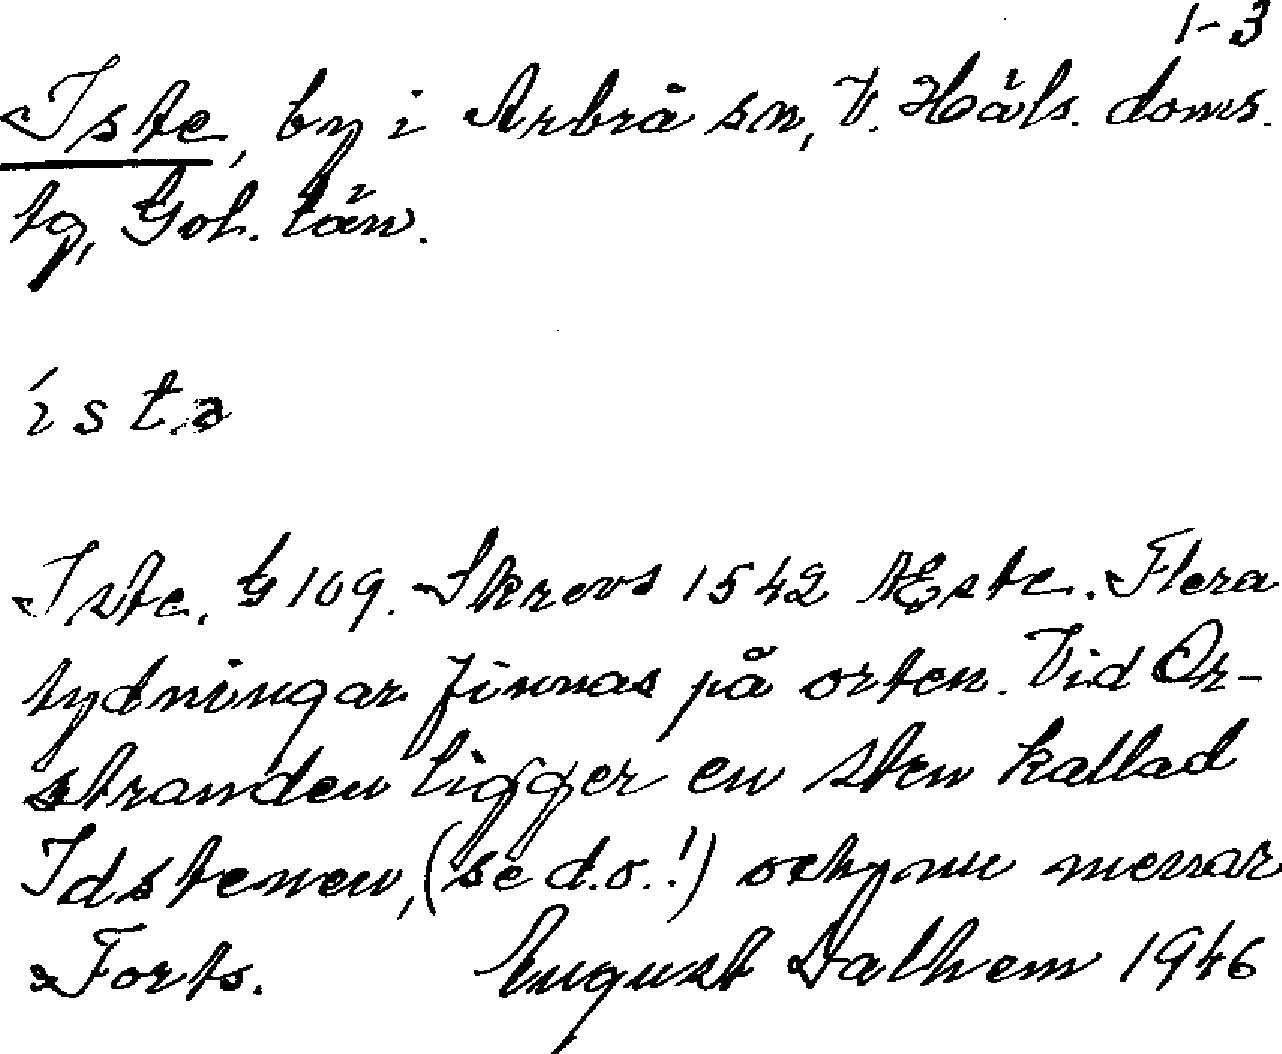 1-3
Iste, by i Arbrå sn, V. Häls. doms.
tg, Gbl. län.
ísta
Iste. G 109. Skrevs 1542 Æste. Flera
tydningar finnas på orten. Vid Or-
stranden ligger en sten kallad
Idstenen, (se d.o.!) och nu menar
Forts. August Dalhem 1946